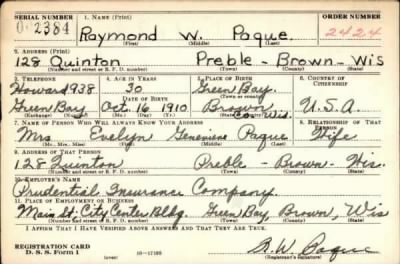 SERIAL NUMBER 1. NAME (Print) ORDER NUMBER
2384 Raymond W. Paque 2424
(First) (Middle) (Last)
2. ADDRESS (Print)
128 Quinton Preble - Brown - Wis
(Number and street or R. F. D. number) (Town) (County) (State)
3. TELEPHONE 4. AGE IN YEARS 5. PLACE OF BIRTH 6. COUNTRY OF CITIZENSHIP
Howard 938 30 Green Bay
DATE OF BIRTH (Town or county)
Green Bay Oct. 16 1910 Brown Co. Wis. U.S.A
(Exchange) (Number) (Mo.) (Day) (Yr.) (State or country)
7. NAME OF PERSON WHO WILL ALWAYS KNOW YOUR ADDRESS 8. RELATIONSHIP OF THAT PERSON
Mrs Evelyn Genevieve Paque Wife
(Mr., Mrs., Miss) (First) (Middle) (Last)
9. ADDRESS OF THAT PERSON
128 Quinton Preble - Brown - Wis.
(Number and street or R. F. D. number) (Town) (County) (State)
10. EMPLOYER'S NAME
Prudential Insurance Company.
11. PLACE OF EMPLOYMENT OR BUSINESS
Main St. City Center Bldg. Green Bay, Brown, Wis
(Number and street or R. F. D. number) (Town) (County) (State)
I AFFIRM THAT I HAVE VERIFIED ABOVE ANSWERS AND THAT THEY ARE TRUE.
REGISTRATION CARD
D. S. S. Form 1 (over) R.W. Paque
(Registrant's signature)